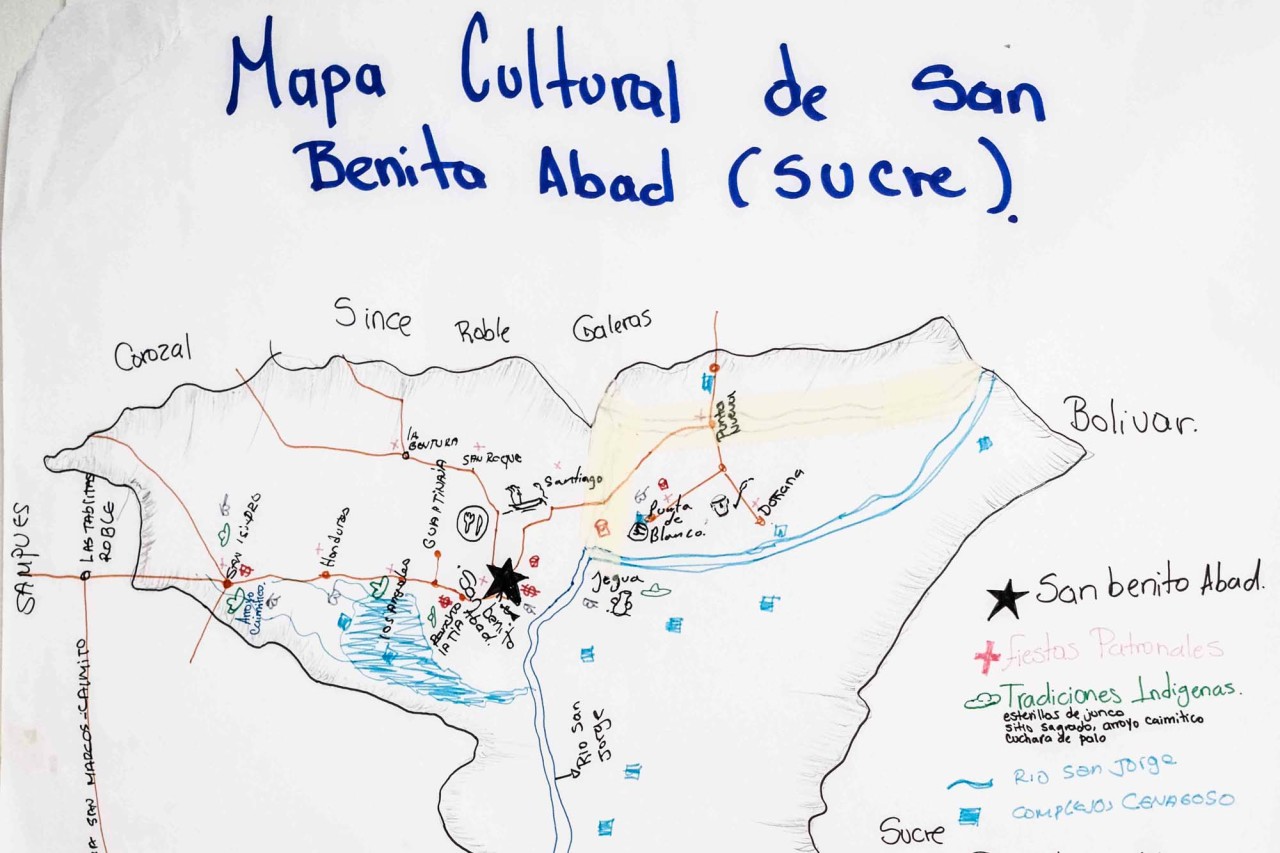 Mapa Cultural de San
Benito Abad (Sucre).
Corozal
Since
Roble
Galeras
Bolivar.
SAMPUES
LAS TABLITAS
ROBLE
SAN MARCOS-CAIMITO
San ISIDRO
Arroyo
Caimitico
Honduras
LOS Angeles
GUAYTINAJA
la
BENTURA
SAN ROQUE
Santiago
Punta
Nueva
Punta
de
Blanco.
Doñana
Jegua
Rancho
Benito
Abad.
RIO San
Jorge
San benito Abad.
fiestas Patronales
Tradiciones Indigenas.
esterillas de junco
sitio sagrado, arroyo caimitico
cuchara de palo
RIO San Jorge
COMPLEJOS CENAGOSO
Sucre